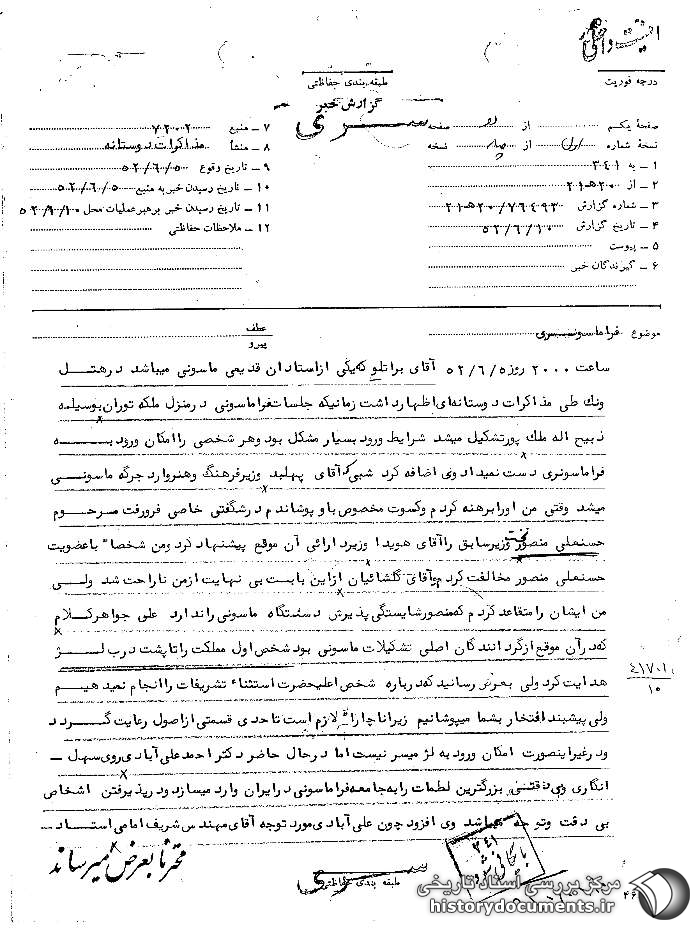 طبقه بندی حفاظتی
درجه فوریت
گزارش خبر
سری
صفحه یکم از صفحه
نسخه شماره اول از چهار نسخه
۱ ـ به ۳۴۱
۲ ـ از ۲۰هـ۲۱
۳ ـ شماره گزارش ۲۱هـ۲۰/۷۶۴۹۳
۴ ـ تاریخ گزارش ۵۲/۶/۱۰
۵ ـ پیوست
۶ ـ گیرندگان خبر
۷ ـ منبع ۷۲۰۰۲
۸ ـ منشأ مذاکرات دوستانه
۹ ـ تاریخ وقوع ۵۲/۶/۵
۱۰ ـ تاریخ رسیدن خبر به منبع ۵۲/۶/۵
۱۱ ـ تاریخ رسیدن خبر برهبر عملیات محل ۵۲/۶/۱۰
۱۲ ـ ملاحظات حفاظتی
موضوع فراماسونری
عطف
پیرو
ساعت ۲۰۰۰ روز ۵۲/۶/۵ آقای براتلو که یکی ازاستادان قدیمی ماسونی میباشد درهتل
ونک طی مذاکرات دوستانه‌ای اظهارداشت زمانیکه جلسات فراماسونی درمنزل ملکه توران بوسیله
ذبیح اله ملک پورتشکیل میشد شرایط ورود بسیار مشکل بود وهر شخصی راامکان ورود به
فراماسونری دست نمیداد وی اضافه کرد شبی که آقای پهلبد وزیرفرهنگ وهنروارد جرگه ماسونی
میشد وقتی من اورابرهنه کردم وکسوت مخصوص باو پوشاندم درشگفتی خاصی فرورفت مرحوم
حسنعلی منصور نخست وزیرسابق راآقای هویدا وزیردارائی آن موقع پیشنهاد کرد ومن شخصا" باعضویت
حسنعلی منصور مخالفت کردم وآقای گلشائیان ازاین بابت بی نهایت ازمن ناراحت شد ولی
من ایشان رامتقاعد کردم که منصور شایستگی پذیرش دستگاه ماسونی راندارد علی جواهرکلام
که درآن موقع ازگردانندگان اصلی تشکیلات ماسونی بود شخص اول مملکت راتاپشت درب لژ
هدایت کرد ولی بعرض رسانید که درباره شخص اعلیحضرت استثناء تشریفات راانجام نمیدهیم
ولی پیشبند افتخار بشما میپوشانیم زیرا ناچارا" لازم است تاحدی قسمتی ازاصول رعایت گردد
ودرغیراینصورت امکان ورود به لژ میسر نیست اما درحال حاضر دکتر احمد علی آبادی روی سهل ـ
انگاری وبی دقتی بزرگترین لطمات رابه جامعه فراماسونی درایران وارد میسازد ودرپذیرفتن اشخاص
بی دقت وتوجه میباشد وی افزود چون علی آبادی مورد توجه آقای مهندس شریف امامی استاد ـ
۴۱۷۰۱
۱۰
محترماً بعرض میرساند
سری
طبقه بندی حفاظتی
۳۴۱
بایگانی شد
۴۶
مرکز بررسی اسناد تاریخی
historydocuments.ir